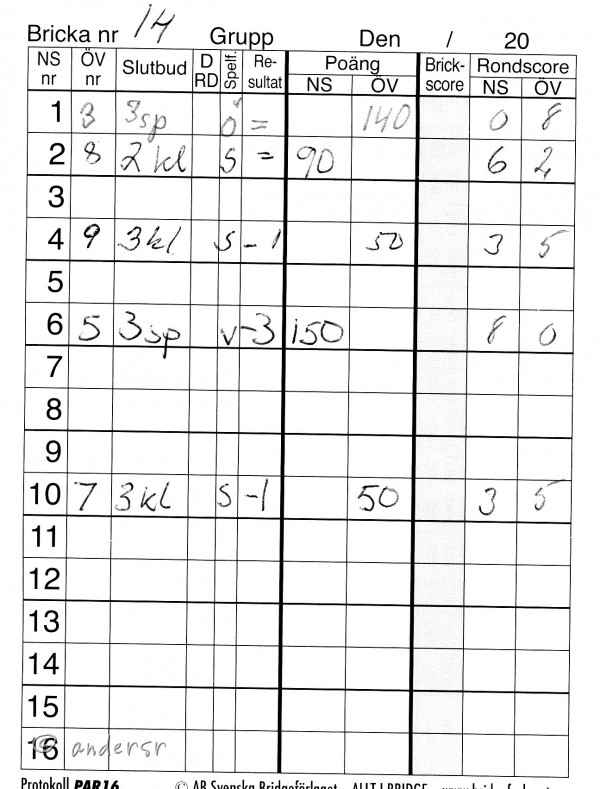 Bricka nr 14 Grupp Den / 20
NS nr ÖV nr Slutbud D RD Spelf. Re-sultat Poäng NS ÖV Brick-score Rondscore NS ÖV
1 3 3sp ö = 140 0 8
2 8 2kl s = 90 6 2
3
4 9 3kl s -1 50 3 5
5
6 5 3sp v -3 150 8 0
7
8
9
10 7 3kl s -1 50 3 5
11
12
13
14
15
16 andersr
Protokoll PAR16 © AB Svenska Bridgeförlaget